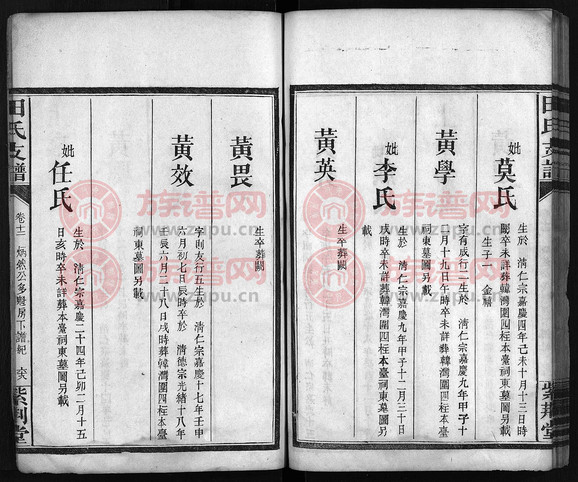 田氏支譜
紫荊堂
妣莫氏
生於 清仁宗嘉慶四年己未十月十三日時
歿卒未詳葬韓灣圍四枉本臺祠東墓圖另載
生子一 金輔
黃學
字有成行一生於 清仁宗嘉慶九年甲子十
二月十九日午時卒未詳葬韓灣圍四枉本臺
祠東墓圖另載
妣李氏
生於 清仁宗嘉慶九年甲子十二月三十日
戌時卒未詳葬韓灣圍四枉本臺祠東墓圖另
載
黃英
生卒葬闕
黃畏
生卒葬闕
黃效
字則友行五生於 清仁宗嘉慶十七年壬申
六月初七日辰時卒於 清德宗光緒十八年
壬辰六月二十八日戌時葬韓灣圍四枉本臺
祠東墓圖另載
妣任氏
生於 清仁宗嘉慶二十四年己卯二月十五
日亥時卒未詳葬本臺祠東墓圖另載
田氏支譜
卷十二
炳然公多房下譜紀
紫荊堂
族谱网
www.zupu.cn
族谱网
www.zupu.cn